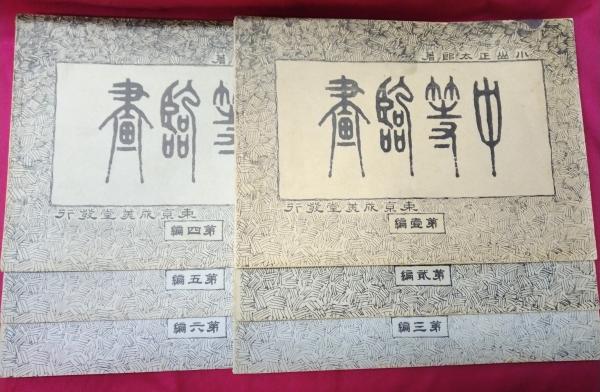 小山正太郎著
中等臨畫
東京成美堂發行
第壹編
第貳編
第三編
著
臨畫
東京成美堂發行
第四編
第五編
第六編